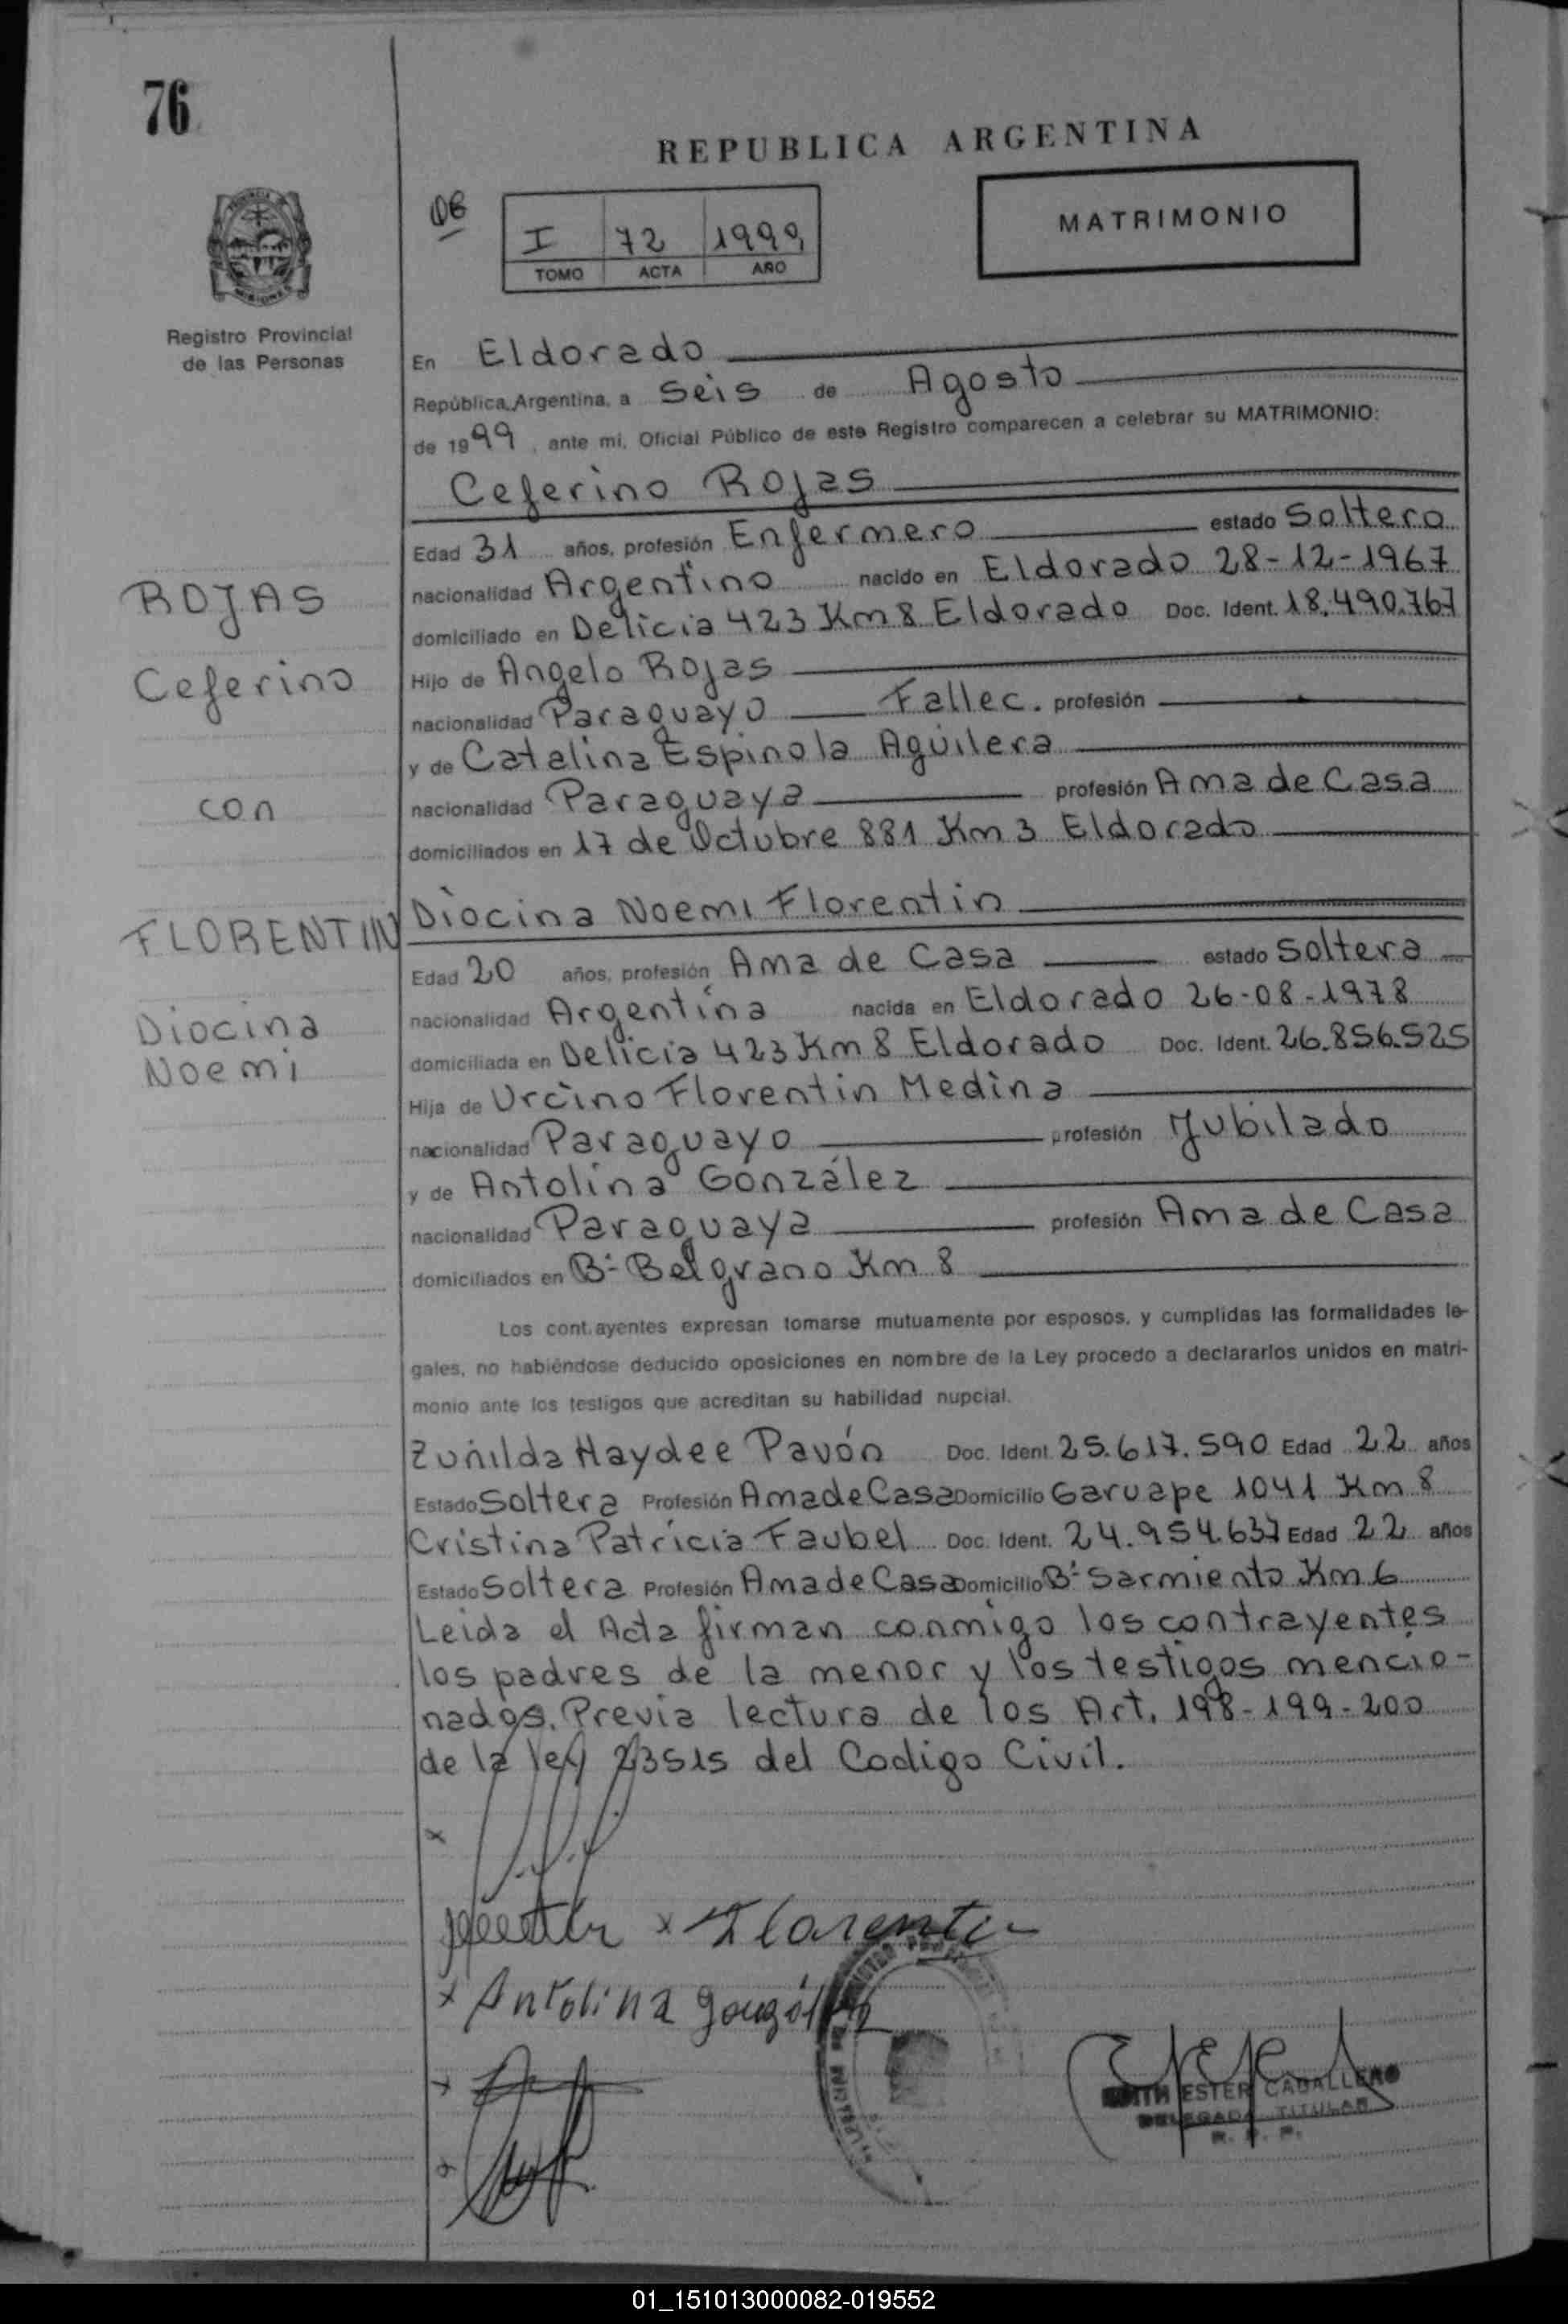 76
REPUBLICA ARGENTINA
I 72 1999
TOMO ACTA AÑO
MATRIMONIO
Registro Provincial
de las Personas
En Eldorado
República Argentina, a Seis de Agosto
de 1999, ante mi, Oficial Público de este Registro comparecen a celebrar su MATRIMONIO:
Ceferino Rojas
Edad 31 años, profesión Enfermero estado Soltero
nacionalidad Argentino nacido en Eldorado 28-12-1967
domiciliado en Delicia 423 Km 8 Eldorado Doc. Ident. 18.490.767
Hijo de Angelo Rojas
nacionalidad Paraguayo Fallec. profesión
y de Catalina Espinola Aguilera
nacionalidad Paraguaya profesión Ama de Casa
domiciliados en 17 de Octubre 881 Km 3 Eldorado
ROJAS
Ceferino
con
FLORENTIN
Diocina
Noemi
Diocina Noemi Florentin
Edad 20 años, profesión Ama de Casa estado Soltera
nacionalidad Argentina nacida en Eldorado 26-08-1978
domiciliada en Delicia 423 Km 8 Eldorado Doc. Ident. 26.856.525
Hija de Urcino Florentin Medina
nacionalidad Paraguayo profesión Jubilado
y de Antolina González
nacionalidad Paraguaya profesión Ama de Casa
domiciliados en B- Belgrano Km 8
Los cont.ayentes expresan tomarse mutuamente por esposos, y cumplidas las formalidades le-
gales, no habiéndose deducido oposiciones en nombre de la Ley procedo a declararlos unidos en matri-
monio ante los testigos que acreditan su habilidad nupcial.
Zunilda Haydee Pavón Doc. Ident. 25.617.590 Edad 22 años
Estado Soltera Profesión Ama de Casa Domicilio Garuape 1041 Km 8
Cristina Patricia Faubel Doc. Ident. 24.954.637 Edad 22 años
Estado Soltera Profesión Ama de Casa Domicilio B- Sarmiento Km 6
Leida el Acta firman conmigo los contrayentes
los padres de la menor y los testigos mencio-
nados. Previa lectura de los Art. 198-199-200
de la ley 23515 del Codigo Civil.
x
x Florentin
x Antolina González
x
x
EDITH ESTER CABALLERO
DELEGADA TITULAR
R. P. P.
01_151013000082-019552